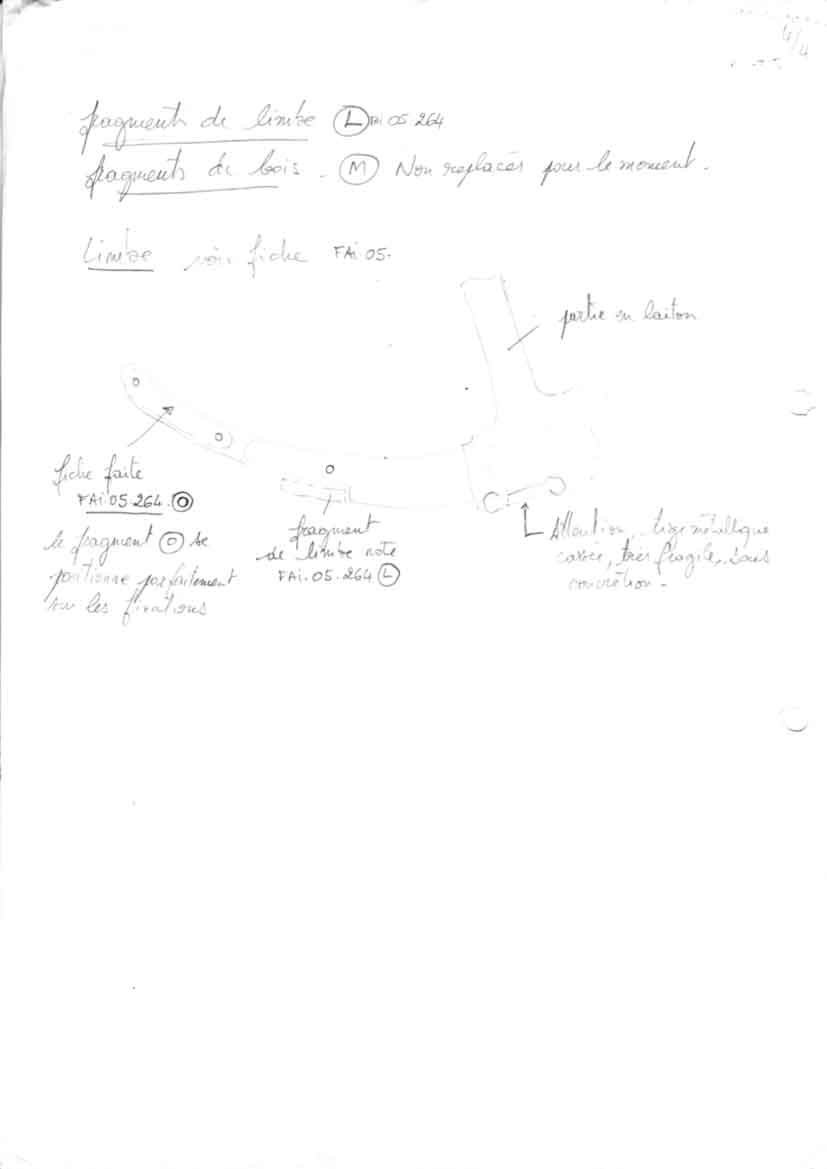 4/4
fragments de limbe (L) FAi 05.264
fragments de bois. (M) Non replacés pour le moment.
Limbe voir fiche FAi.05.
partie en laiton
fiche faite
FAi.05.264.(O)
le fragment (O) se
positionne parfaitement
sur les fixations
fragment
de limbe noté
FAi.05.264 (L)
Attention, tige métallique
cassée, très fragile, sans
concrétion.